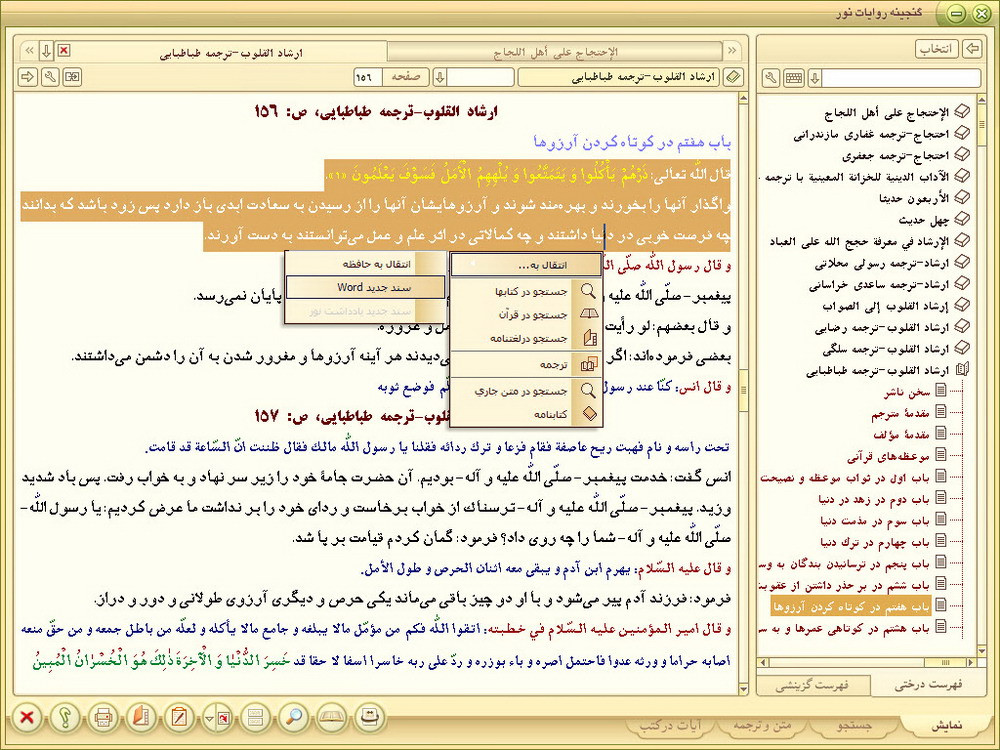 گنجینه روایات نور
انتخاب
الإحتجاج على أهل اللجاج
ارشاد القلوب-ترجمه طباطبایی
ارشاد القلوب-ترجمه طباطبایی
صفحه
۱۵۶
ارشاد القلوب-ترجمه طباطبایی، ص: ۱۵۶
باب هفتم در کوتاه کردن آرزوها
قال اللّه تعالى: ذَرْهُمْ يَأْكُلُوا وَ يَتَمَتَّعُوا وَ يُلْهِهِمُ الْأَمَلُ فَسَوْفَ يَعْلَمُونَ «۱».
واگذار آنها را بخورند و بهره‌مند شوند و آرزوهایشان آنها را از رسیدن به سعادت ابدی باز دارد پس زود باشد که بدانند
چه فرصت خوبی در دنیا داشتند و چه کمالاتی در اثر علم و عمل می‌توانستند به دست آورند.
و قال رسول اللّه صلّى
پیغمبر-صلّى اللّه علیه و
پایان نمی‌رسد.
و قال بعضهم: لو رأيت
و غروره.
بعضی فرموده‌اند: اگر
می‌دیدند هر آینه آرزوها و مغرور شدن به آن را دشمن می‌داشتند.
و قال انس: كنّا عند رسول
فوضع ثوبه
ترجمه طباطبایی، ص: ۱۵۷
تحت راسه و نام فهبت ريح عاصفة فقام فزعا و ترك ردائه فقلنا يا رسول اللّه مالك فقال ظننت انّ السّاعة قد قامت.
انس گفت: خدمت پیغمبر-صلّى اللّه علیه و آله-بودیم. آن حضرت جامۀ خود را زیر سر نهاد و به خواب رفت. پس باد شدید
وزید. پیغمبر-صلّى اللّه علیه و آله-ترسناك از خواب برخاست و ردای خود را بر نداشت ما عرض کردیم: یا رسول اللّه-
صلّى اللّه علیه و آله-شما را چه روی داد؟ فرمود: گمان کردم قیامت بر پا شد.
و قال عليه السّلام: يهرم ابن آدم و يبقى معه اثنان الحرص و طول الأمل.
فرمود: فرزند آدم پیر می‌شود و با او دو چیز باقی می‌ماند یکی حرص و دیگری آرزوی طولانی و دور و دراز.
و قال امير المؤمنين عليه السّلام في خطبته: اتقوا اللّه فكم من مؤمّل مالا يبلغه و جامع مالا يأكله و لعلّه من باطل جمعه و من حقّ منعه
اصابه حراما و ورثه عدوا فاحتمل اصره و باء بوزره و ردّ على ربه خاسرا اسفا لا حقا قد خَسِرَ الدُّنْيا وَ الْآخِرَةَ ذلِكَ هُوَ الْخُسْرانُ الْمُبِينُ
انتقال به...
جستجو در کتابها
جستجو در قرآن
جستجو درلغتنامه
ترجمه
جستجو در متن جاري
کتابنامه
انتقال به حافظه
سند جدید Word
سند جدید یادداشت نور
الإحتجاج على أهل اللجاج
احتجاج-ترجمه غفاری مازندرانی
احتجاج-ترجمه جعفری
الآداب الدينية للخزانة المعينية با ترجمه
الأربعون حديثا
چهل حدیث
الإرشاد في معرفة حجج الله على العباد
ارشاد-ترجمه رسولی محلاتی
ارشاد-ترجمه ساعدی خراسانی
إرشاد القلوب إلى الصواب
ارشاد القلوب-ترجمه رضایی
ارشاد القلوب-ترجمه سلگی
ارشاد القلوب-ترجمه طباطبایی
سخن ناشر
مقدمۀ مترجم
مقدمۀ مؤلف
موعظه‌های قرآنی
باب اول در ثواب موعظه و نصیحت
باب دوم در زهد در دنیا
باب سوم در مذمت دنیا
باب چهارم در ترك دنیا
باب پنجم در ترسانیدن بندگان به
باب ششم در بر حذر داشتن از
باب هفتم در کوتاه کردن آرزوها
باب هشتم در کوتاهی عمرها و به
فهرست درختی
فهرست گزینشی
نمایش
جستجو
متن و ترجمه
آیات در کتب